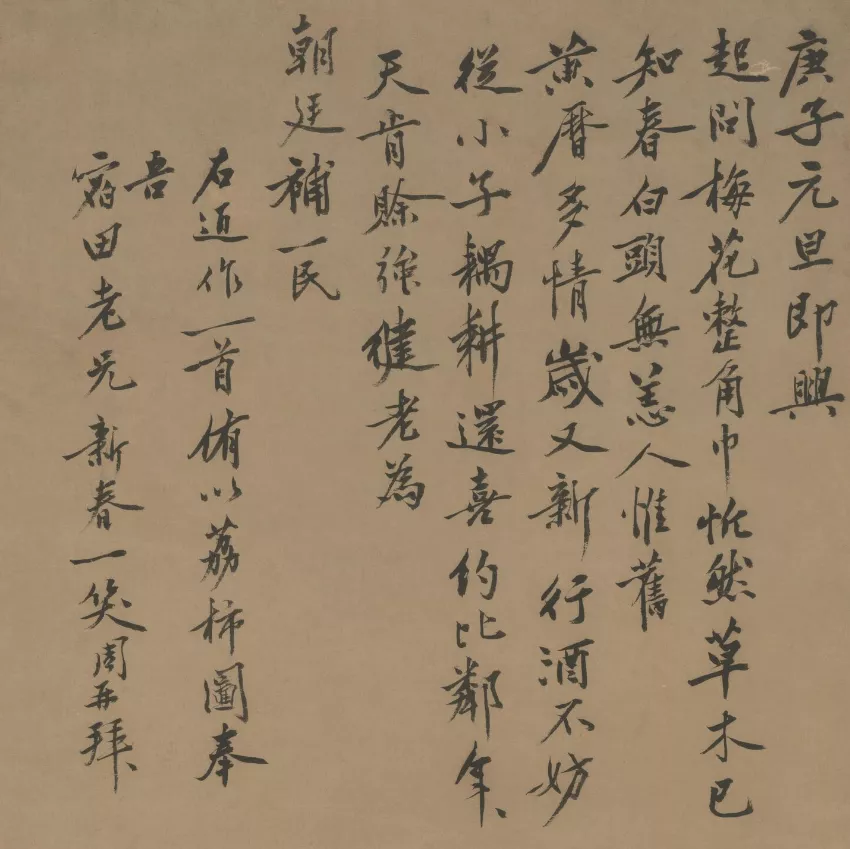 庚子元旦即興
起問梅花整角巾怳然草木已
知春白頭無恙人惟舊
黃曆多情歲又新行酒不妨
從小子耦耕還喜約比鄰年、
天肯賒強健老為
朝廷補一民
右近作一首侑以荔柿圖奉
吾
宿田老兄新春一笑周再拜